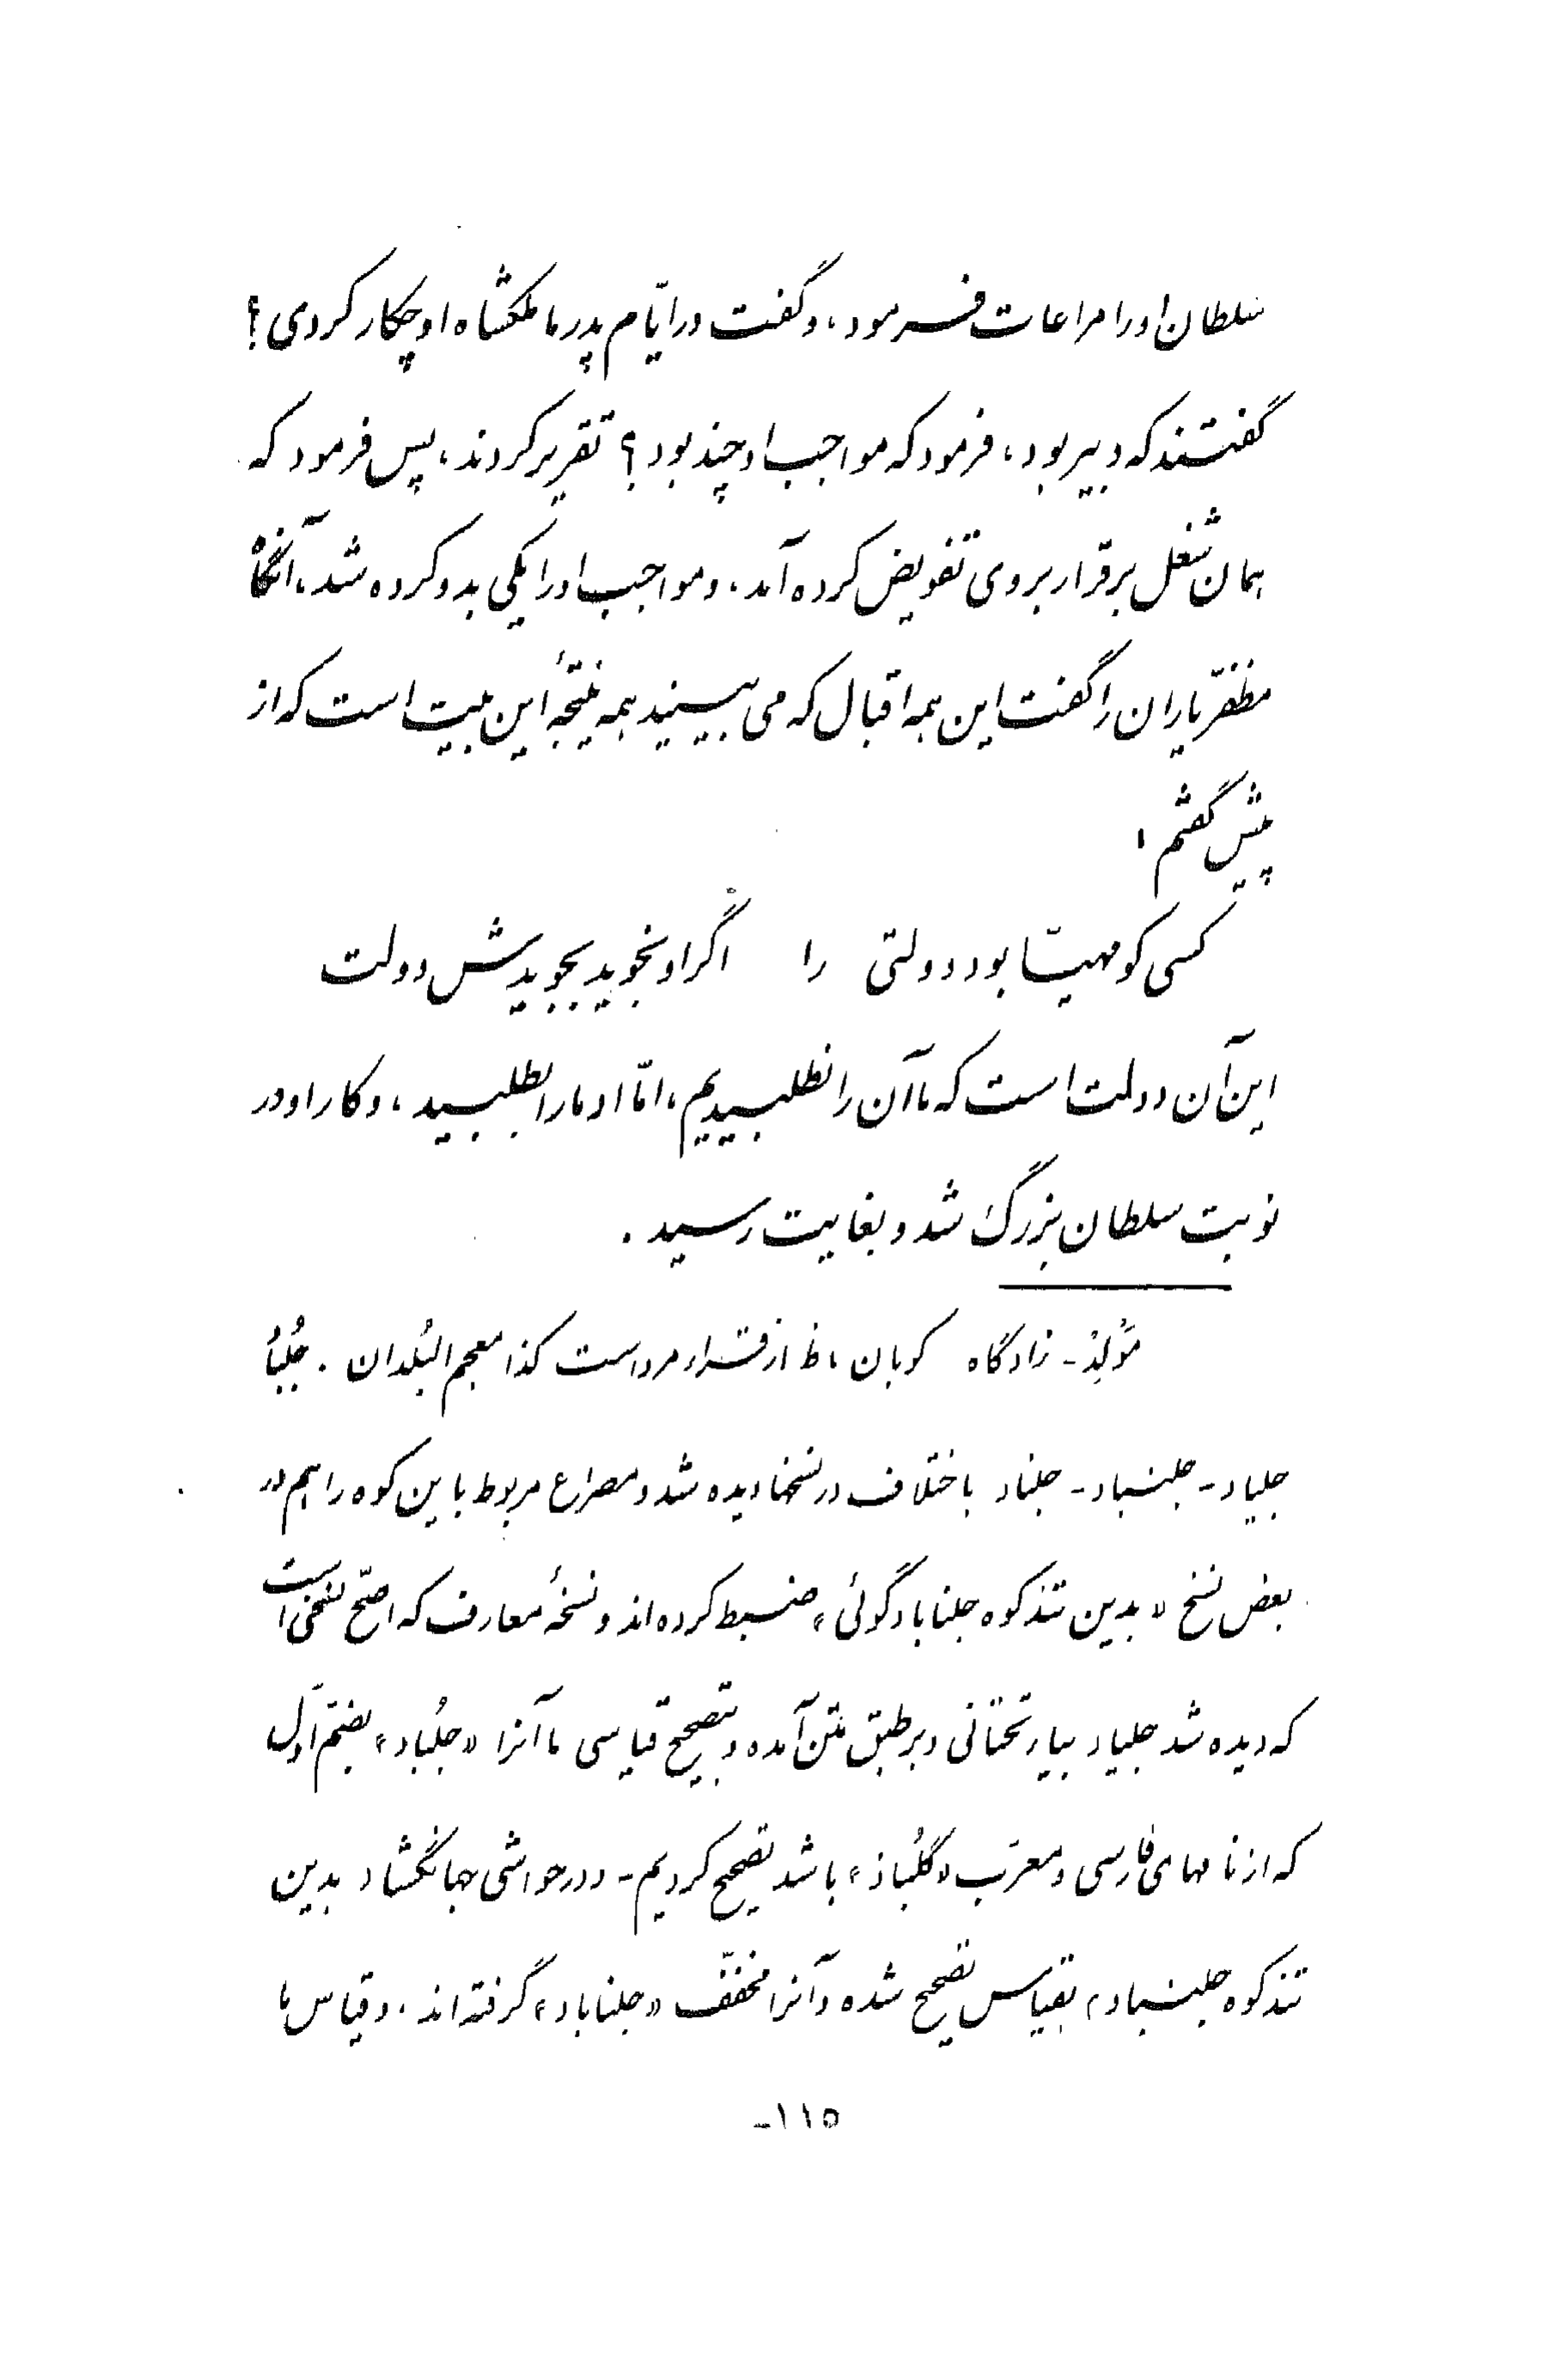 سلطان او را مراعات فرمود، و گفت در ایّام پدر ما ملکشاه او چکار کردی؟
گفتند که دبیر بود، فرمود که مواجب او چند بود؟ تقریر کردند، پس فرمود که
همان شغل برقرار بر وی تفویض کرده آمد، و مواجب او را یکی بدو کرده شد، آنگاه
مظفّر یاران را گفت این همه اقبال که می بینید همه نتیجهٔ این بیت است که از
پیش گفتم:
کسی کو مهیّا بود دولتی را اگر او نجوید بجویدش دولت
این آن دولت است که ما آن را نطلبیدیم، امّا او ما را بطلبید، و کار او در
نوبت سلطان بزرگ شد و بغایت رسید.
مَوْلِدْ - زادگاه کوبان، ظ از قراء مرو است کذا معجم البُلدان. جُلُباُ
جلیاد - جلنباد - جلناد باختلاف در نسخها دیده شد و مصراع مربوط باین کوه را هم در
بعض نسخ «بدین تند کوه جناباد گوئی» ضبط کرده اند و نسخهٔ معارف که اصحّ نسخی است
که دیده شد جلیاد بیاء تحتانی و بر طبق متن آمده و بتصحیح قیاسی ما آنرا «جلُباد» بضمّ اوّل
که از نامهای فارسی و معرّب «گلُباذ» باشد تصحیح کردیم - و در حواشی جهانگشا «بدین
تند کوه جلنباد» بقیاس تصحیح شده و آنرا مخفّف «جلناباد» گرفته اند. و قیاس با
۱۱۵-